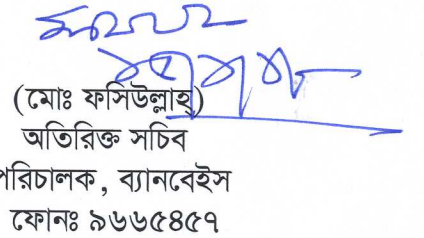 (মোঃ ফসিউল্লাহ্)
অতিরিক্ত সচিব
পরিচালক, ব্যানবেইস
ফোনঃ ৯৬৬৫৪৫৭